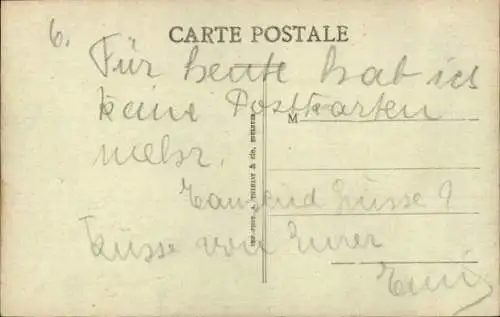 6.
CARTE POSTALE
Für heute hab ich
keine Postkarten
M
mehr.
Tausend Grüsse &
Küsse von Eurer